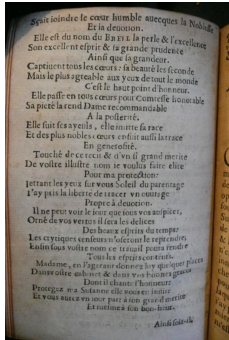 Sçait ioindre le cœur humble auecques la Noblesse
Et la deuotion.
Elle est du nom du BREIL la perle & l'excellence
Son excellent esprit & sa grande prudence
Ainsi que la grandeur.
Captiuent tous les cœurs: sa beauté les seconde
Mais le plus agreable aux yeux de tout le monde
C'est le haut point d'honneur.
Elle passe en tous cœurs pour Comtesse honorable
Sa pieté la rend Dame recommandable
A la posterité.
Elle suit ses ayeuls, elle imitte sa race
Et des plus nobles cœurs ensuit aussi la trace
En generosité.
Touché de ce recit & d'vn si grand merite
De vostre illustre nom ie voulus faire elite
Pour ma protection:
Iettant les yeux sur vous Soleil du parentage
I'ay pris la liberté de tracer vn ouurage
Propre à deuotion.
Il ne peut voir le iour que sous vos auspices,
Orné de vos vertus il sera les delices
Des beaux esprits du temps:
Les crytiques censeurs n'oseront le reprendre,
Enfin sous vostre nom ce trauail pourra rendre
Tous les esprits contents.
Madame, en l'agreant donnez luy quelques places
Dans vostre cabinet & dans vos bonnes graces
Dont il chante l'honneur:
Protegez ma Susanne elle vous en inuite
Et vous aurez vn iour part à son grand merite
Et mesme à son bon-heur.
Ainsi soit-il.